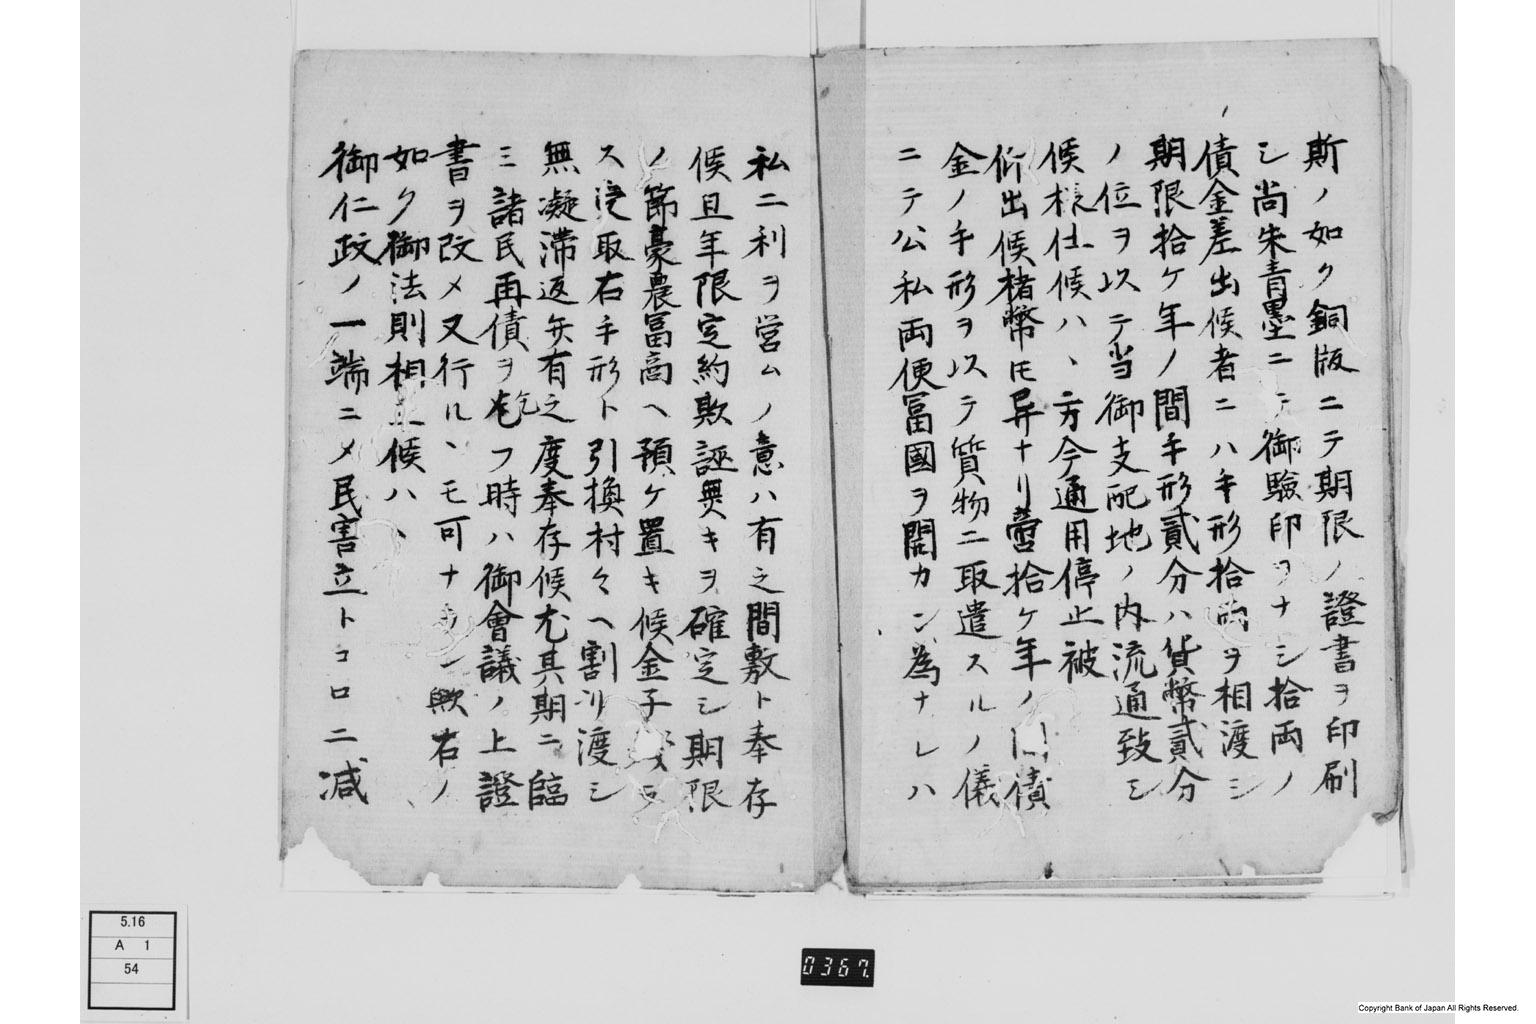 斯ノ如ク銅版ニテ期限ノ證書ヲ印刷
シ尚朱青墨ニテ御驗印ヲナシ拾両ノ
債金差出候者ニハ手形拾両ヲ相渡シ
期限拾ケ年ノ間手形貳分ハ貨幣貳分
ノ位ヲ以テ当御支配地ノ内流通致シ
候様仕候ハヽ方今通用停止被
仰出候楮幣ㇳモ异ナリ壹拾ケ年ノ債
金ノ手形ヲ以テ質物ニ取遣スルノ儀
ニテ公私両便冨國ヲ開カン為ナレハ
私ニ利ヲ営ムノ意ハ有之間敷ト奉存
候且年限定約欺誣無キヲ確定シ期限
ノ節豪農冨商ヘ預ケ置キ候金子
ス受取右手形ト引換村々ヘ割リ渡シ
無凝滞返弁有之度奉存候尤其期ニ臨
ミ諸民再債ヲ乞フ時ハ御會議ノ上證
書ヲ改メ又行ルヽモ可ナラン歟右ノ
如ク御法則相立候ハヽ
御仁政ノ一端ニメ民害立トコロニ減
5.16
A 1
54
0367.
Copyright Bank of Japan All Rights Reserved.